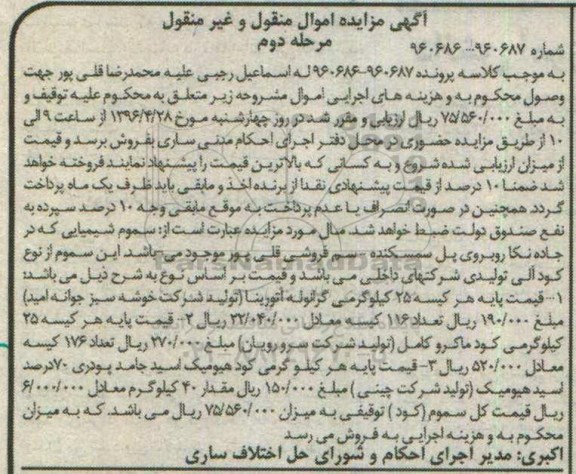 آگهی مزایده اموال منقول و غیر منقول
مرحله دوم
شماره ۹۶۰۶۸۷... ۹۶۰۶۸۶
به موجب کلاسه پرونده ۹۶۰۶۸۷-۹۶۰۶۸۶ له اسماعیل رجبی علیه محمدرضا قلی پور جهت
وصول محکوم به و هزینه های اجرایی اموال مشروحه زیر متعلق به محکوم علیه توقیف و
به مبلغ ۷۵/۵۶۰/۰۰۰ ریال ارزیابی و مقرر شد در روز چهارشنبه مورخ ۱۳۹۶/۴/۲۸ از ساعت ۹ الی
۱۰ از طریق مزایده حضوری در محل دفتر اجرای احکام مدنی ساری بفروش برسد و قیمت
از میزان ارزیابی شده شروع و به کسانی که بالاترین قیمت را پیشنهاد نمایند فروخته خواهد
شد ضمنا ۱۰ درصد از قیمت پیشنهادی نقدا از برنده اخذ و مابقی باید ظرف یک ماه پرداخت
گردد. همچنین در صورت انصراف یا عدم پرداخت به موقع مابقی وجه ۱۰ درصد سپرده به
نفع صندوق دولت ضبط خواهد شد. مال مورد مزایده عبارت است از: سموم شیمیایی که در
جاده نکا روبروی پل سمسکنده سم فروشی قلی پور موجود می باشد این سموم از نوع
کود آلی تولیدی شرکتهای داخلی می باشد و قیمت بر اساس نوع به شرح ذیل می باشد:
۱- قیمت پایه هر کیسه ۲۵ کیلوگرمی گرانوله آتورینا (تولید شرکت خوشه سبز جوانه امید)
مبلغ ۱۹۰/۰۰۰ ریال تعداد ۱۱۶ کیسه معادل ۳۲/۰۴۰/۰۰۰ ریال ۲- قیمت پایه هر کیسه ۲۵
کیلوگرمی کود ماکرو کامل (تولید شرکت سرو رویان) مبلغ ۲۷۰/۰۰۰ ریال تعداد ۱۷۶ کیسه
معادل ۵۲۰/۰۰۰ ریال ۳- قیمت پایه هر کیلو گرمی کود هیومیک اسید جامد پودری ۷۰درصد
اسید هیومیک (تولید شرکت چینی) مبلغ ۱۵۰/۰۰۰ ریال مقدار ۴۰ کیلوگرم معادل ۶/۰۰۰/۰۰۰
ریال قیمت کل سموم (کود) توقیفی به میزان ۷۵/۵۶۰/۰۰۰ ریال می باشد که به میزان
محکوم به و هزینه اجرایی به فروش می رسد
اکبری: مدیر اجرای احکام و شورای حل اختلاف ساری